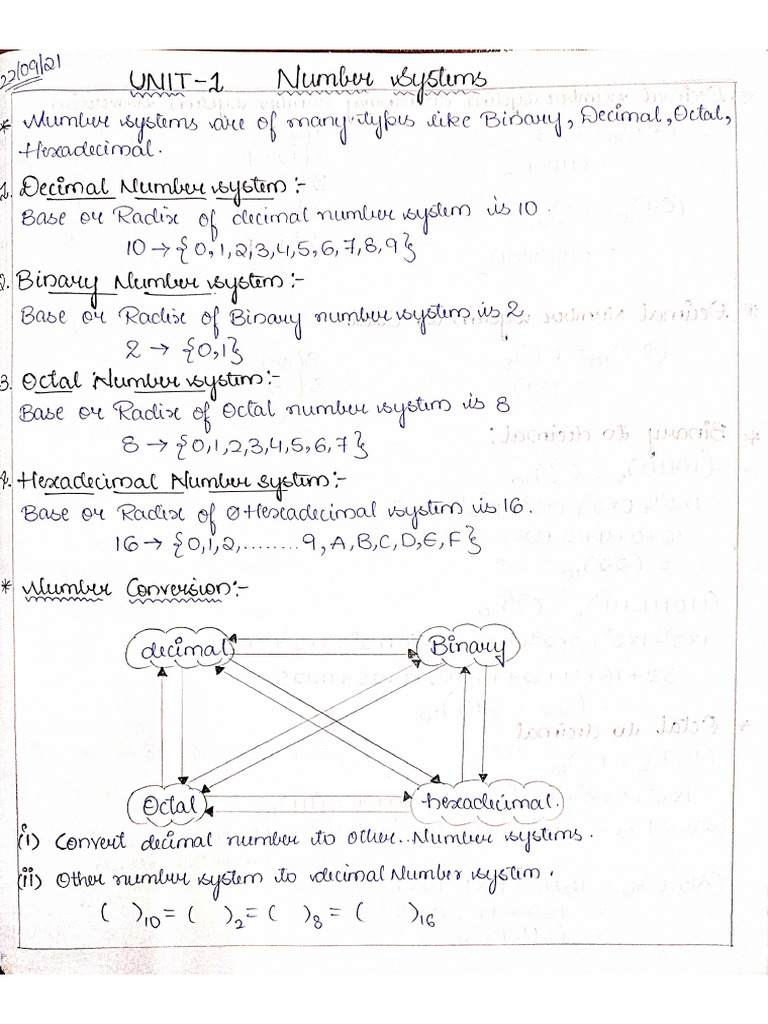 22/09/21
UNIT-1 Number systems
* Number systems are of many types like Binary, Decimal, Octal,
Hexadecimal.
1. Decimal Number system:-
Base or Radix of decimal number system is 10.
10 → {0,1,2,3,4,5,6,7,8,9}
2. Binary Number system:-
Base or Radix of Binary number system is 2
2 → {0,1}
3. Octal Number system:-
Base or Radix of Octal number system is 8
8 → {0,1,2,3,4,5,6,7}
4. Hexadecimal Number system:-
Base or Radix of Hexadecimal system is 16.
16 → {0,1,2,........9,A,B,C,D,E,F}
* Number Conversion:-
decimal Binary
Octal hexadecimal.
(i) Convert decimal number to other..Number systems.
(ii) Other number system to decimal Number system.
( )10 = ( )2 = ( )8 = ( )16